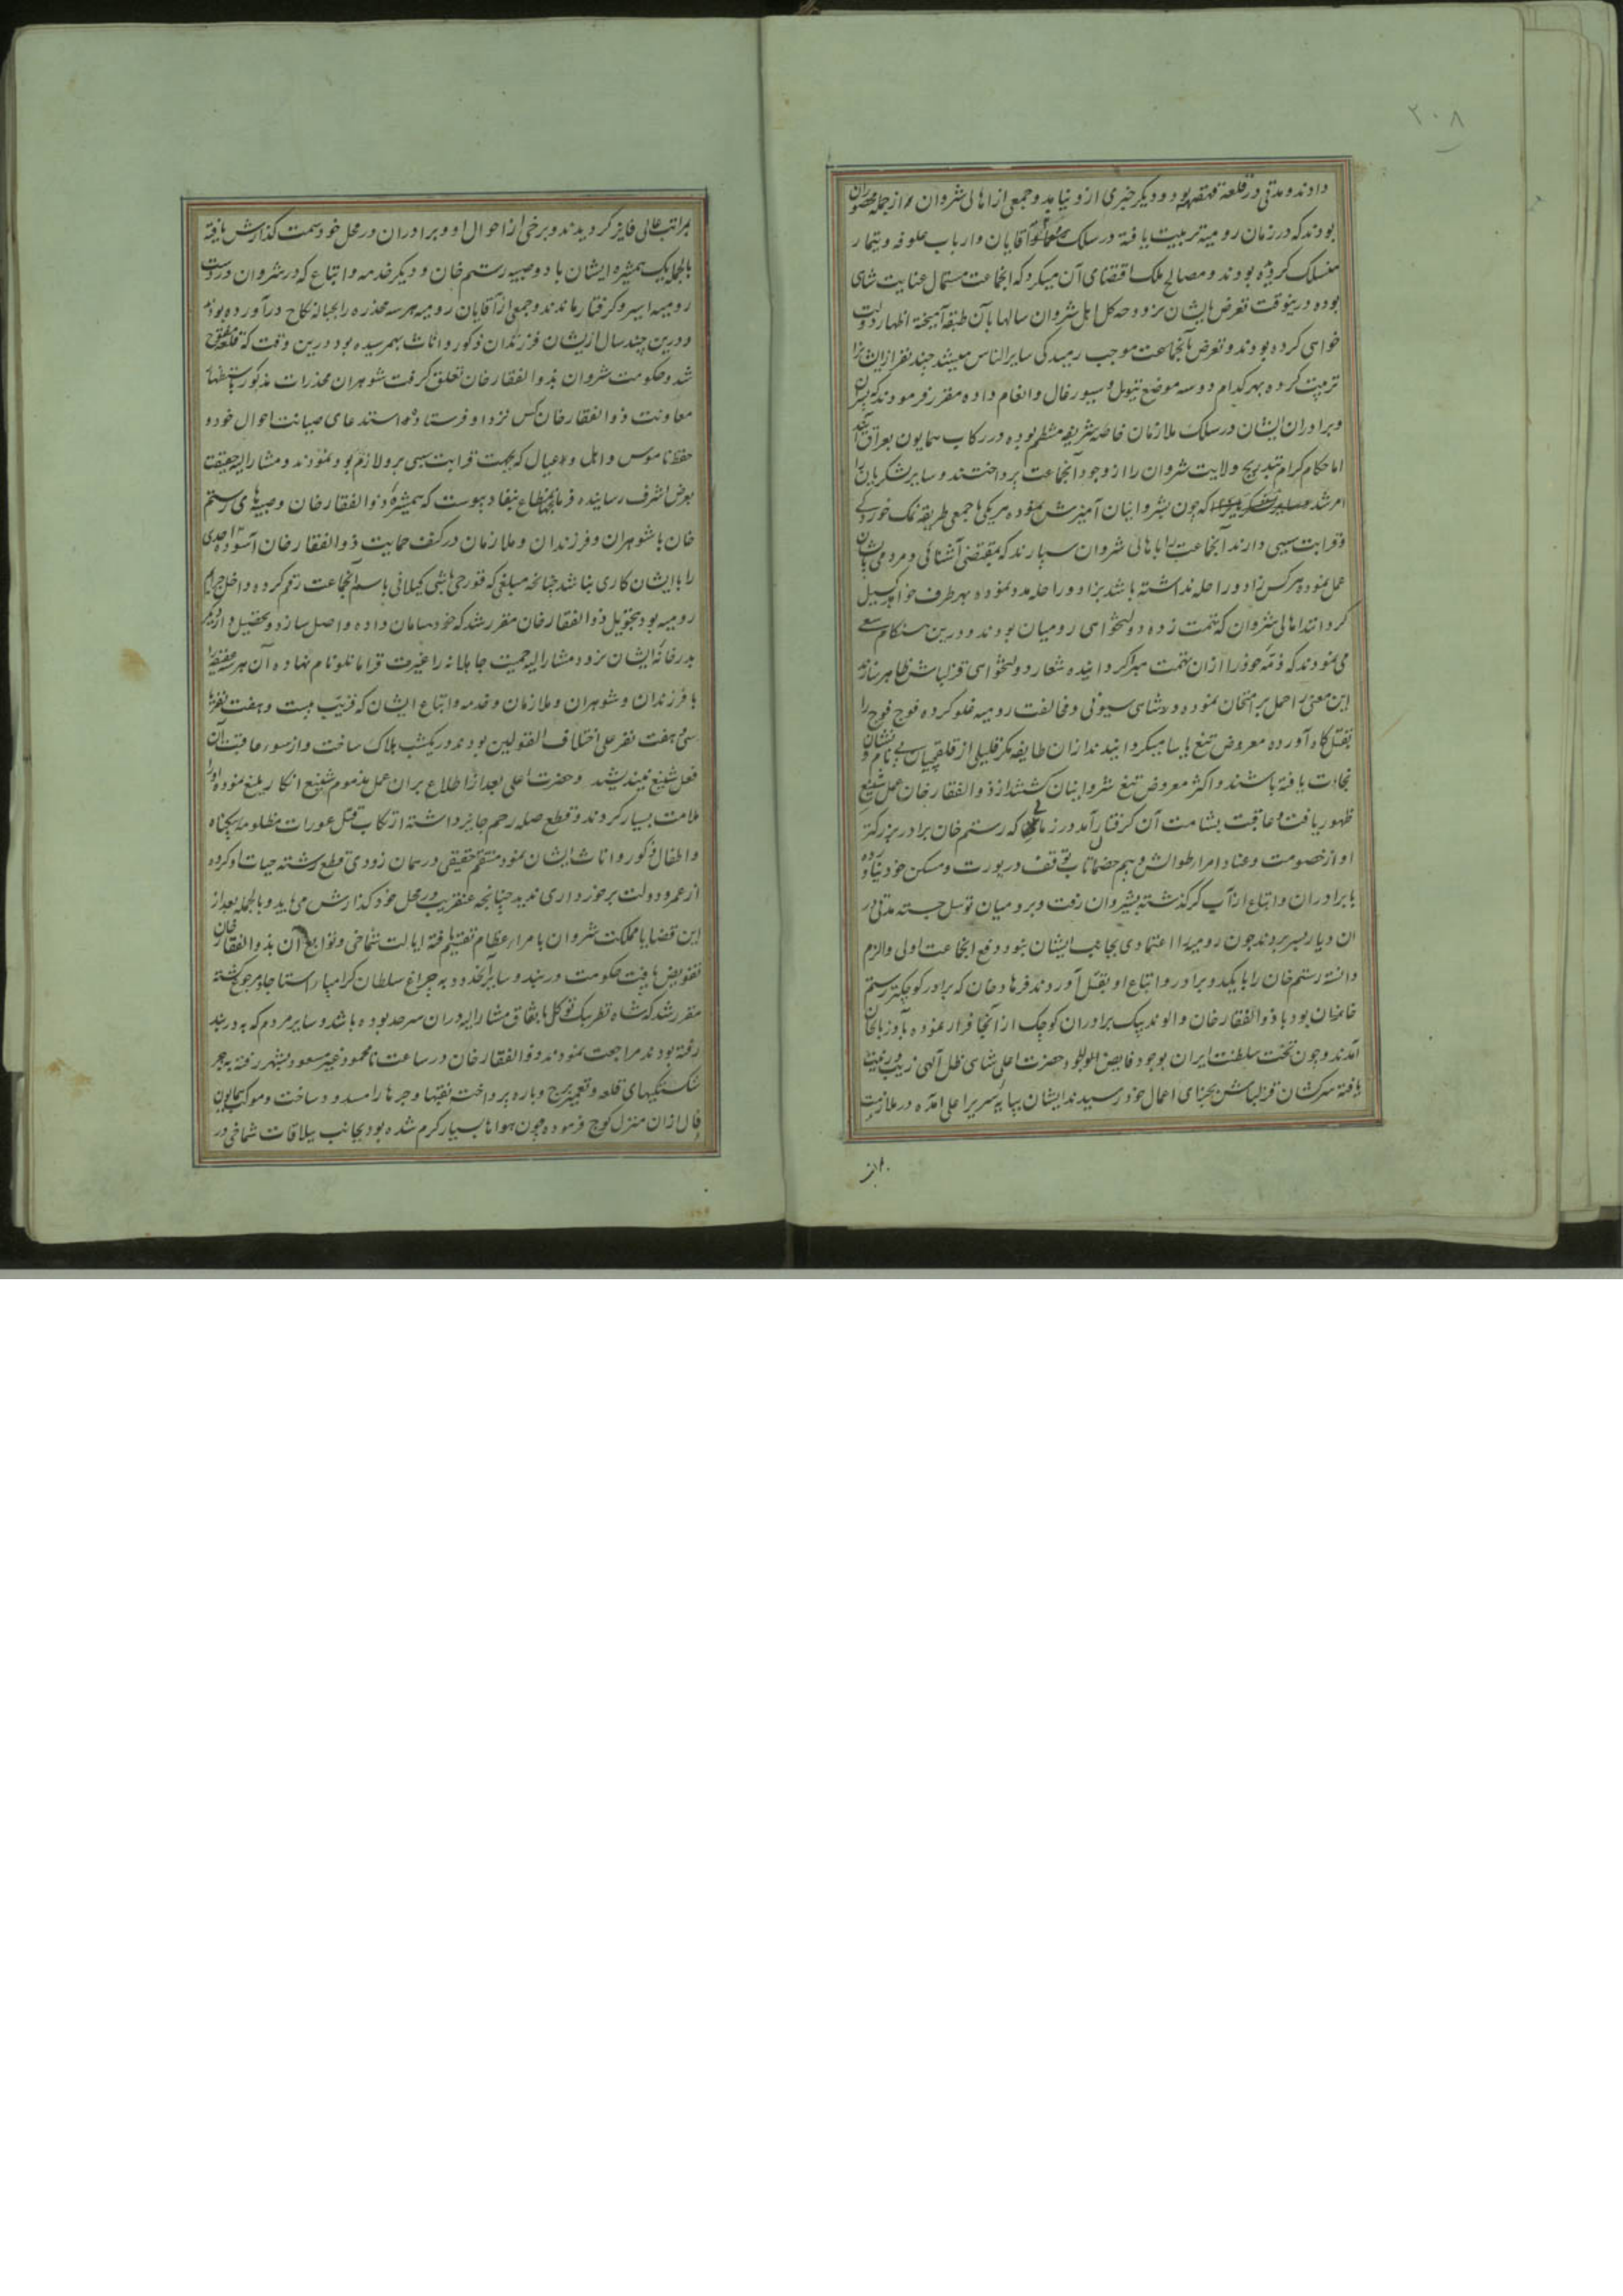 ٢٠٨
دادند و مدتی در قلعه قهقهه بود و دیگر خبری ازو نیامد و جمعی از اهالی شروان که از جمله محصوران
بودند که در زمان رومیه تربیت یافته در سلک آقایان و ارباب علوفه و تیمار
منسلک گردیده بودند و مصالح ملک اقتضای آن میکرد که آنجماعت مستمال عنایت شاهی
بوده درینوقت تعرض بایشان نرود چه کل اهل شروان سالها بآن طبقه آمیخته اظهار دولت
خواهی کرده بودند و تعرض بآنجماعت موجب رمیدگی سایر الناس میشد چند نفر از ایشانرا
تربیت کرده بهر کدام دوسه موضع تیول و سیورغال و انعام داده مقرر فرمودند که پسران
و برادران ایشان در سلک ملازمان خاصه شریفه منتظم بوده در رکاب همایون بعراق آیند
اما حکام کرام بتدریج ولایت شروان را از وجود آنجماعت پرداختند و سایر لشکریان را
امر شد که چون بشروانیان آمیزش نموده هر یکی با جمعی طریقه نمک خوردگی
و قرابت سببی دارند آنجماعت را باهالی شروان سپارند که بمقتضی آشنائی و مردمی بایشان
عمل نموده هر کس زاد و راحله نداشته باشد بزاد و راحله مدد نموده بهر طرف خواهد گسیل
گردانند اهالی شروان که تهمت زده دولتخواهی رومیان بودند و درین هنگام سعی
می نمودند که ذمه خود را ازان تهمت مبرا گردانیده شعار دولتخواهی قزلباش ظاهر سازند
این معنی را حمل بر امتحان نموده در شاهی سیونی و مخالفت رومیه غلو کرده فوج فوج را
بقتلگاه آورده معروض تیغ یاسا میگردانیدند ازان طایفه مگر قلیلی از قلقچیان بی نام و نشان
نجات یافته باشند و اکثر معروض تیغ شروانیان گشتند از ذوالفقار خان عمل شنیع
ظهور یافت و عاقبت بشامت آن گرفتار آمد در زمانی که رستم خان برادر بزرگتر
او از خصومت و عناد امرا و طوالش و بیم حضمان تاب توقف در یورت و مسکن خود نیاورده
با برادران و اتباع از آب کر گذشته بشیروان رفت و برومیان توسل جسته مدتی در
آن دیار بسر بردند چون رومیه را اعتمادی بجانب ایشان نبود و دفع آنجماعت اولی و الزم
دانسته رستم خان را با یکدو برادر و اتباع او بقتل آوردند فرهاد خان که برادر کوچکتر رستم
خان بود با ذوالفقار خان و الوند بیک برادران کوچک از آنجا فرار نموده بآذربایجان
آمدند و چون تخت سلطنت ایران بوجود فایض الجود حضرت اعلی شاهی ظل اللهی زیب و زینت
یافته سرکشان قزلباش بجزای اعمال خود رسیدند ایشان بپایه سریر اعلی آمده در ملازمت
بمراتب عالی فایز گردیدند و برخی از احوال او و برادران در محل خود سمت گذارش یافته
بالجمله یک همشیره ایشان با دو صبیه رستم خان و دیگر خدمه و اتباع که در شروان در دست
رومیه اسیر و گرفتار ماندند و جمعی از آقایان رومیه هر سه مخذره را بحباله نکاح درآورده بودند
و درین چند سال از ایشان فرزندان ذکور و اناث بهم رسیده بود درین وقت که قلعه فتح
شد و حکومت شروان بذوالفقار خان تعلق گرفت شوهران مخدرات مذکور باستظهار
معاونت ذوالفقار خان کس نزد او فرستاده استدعای صیانت احوال خود و
حفظ ناموس و اهل و عیال که بجهت قرابت سببی برو لازم بود نمودند و مشارالیه حقیقت
بعرض اشرف رسانیده فرمان جهانمطاع بنفاذ پیوست که همشیره ذوالفقار خان و صبیهای رستم
خان با شوهران و فرزندان و ملازمان در کنف حمایت ذوالفقار خان آسوده احدی
را با ایشان کاری نباشد چنانچه مبلغی که قورچی باشی گیلانی باسم آنجماعت رقم کرده داخل جرایم
رومیه بود بتحویل ذوالفقار خان مقرر شد که خود سامان داده واصل سازد و تحصیل دار دیگر
بدر خانه ایشان نرود مشارالیه حمیت جاهلانه را غیرت قرامانلو نام نهاده آن هر سه ضعیفه را
با فرزندان و شوهران و ملازمان و خدمه و اتباع ایشان که قریب بیست و هفت نفر یا
سی و هفت نفر علی اختلاف القولین بودند در یکشب هلاک ساخت و از سوء عاقبت آن
فعل شنیع نیندیشید و حضرت اعلی بعد از اطلاع بران عمل مذموم شنیع انکار بلیغ نموده او را
ملامت بسیار کردند و قطع صله رحم جایز داشته ارتکاب قتل عورات مظلومه بیگناه
و اطفال ذکور و اناث ایشان نمود منتقم حقیقی در همان زودی قطع رشته حیات او کرده
از عمر و دولت برخورداری ندید چنانچه عنقریب در محل خود گذارش می یابد و بالجمله بعد از
این قضایا مملکت شروان بامراء عظام تقسیم یافته ایالت شماخی و توابع آن بذوالفقار خان
تفویض یافت حکومت دربند و سایر آنحدود به چراغ سلطان گرامپاء استاجلو مرجوع گشته
مقرر شد که شاه نظر بیک توکلی باتفاق مشارالیه دران سرحد بوده باشد و سایر مردم که به دربند
رفته بودند مراجعت نمودند و ذوالفقار خان در ساعت نامحمود غیر مسعود بشهر رفته به جبر
شکستگیهای قلعه و تعمیر برج و باره پرداخت نقبها و جرها را مسدود ساخت و موکب همایون
فال ازان منزل کوچ فرموده چون هواها بسیار گرم شده بود بجانب ییلاقات شماخی در